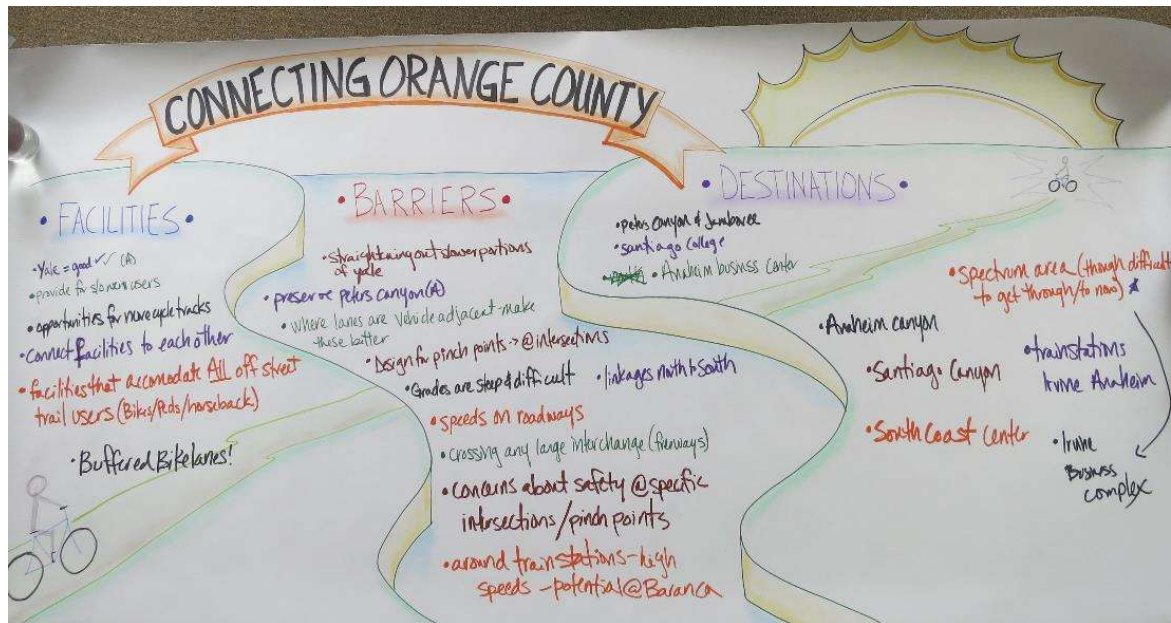 CONNECTING ORANGE COUNTY
• FACILITIES •
• Yale = good ✓✓ (A)
• provide for slower users
• opportunities for more cycle tracks
• Connect facilities to each other
• facilities that accomodate ALL off street
trail users (Bikes/Peds/horseback)
• Buffered Bikelanes!
• BARRIERS •
• straightening out slower portions
of yale
• preserve peters canyon (A)
• where lanes are vehicle adjacent - make
these better
• Design for pinch points -> @ intersections
• Grades are steep & difficult
• linkages north to south
• speeds on roadways
• crossing any large interchange (freeways)
• concerns about safety @ specific
intersections / pinch points
• around train stations - high
speeds - potential @ Baranca
• DESTINATIONS •
• peters canyon & Jamboree
• santiago college
• Anaheim business center
• spectrum area (though difficult
to get through/to now) *
• Anaheim canyon
• Santiago Canyon
• South Coast Center
• trainstations
Irvine Anaheim
• Irvine
Business
complex